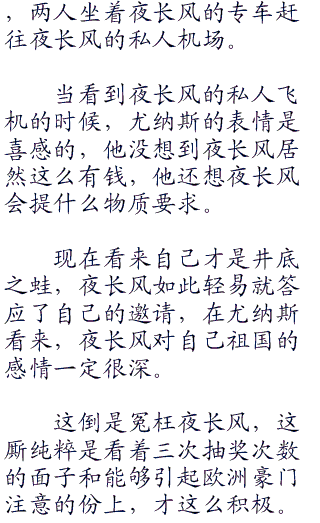 ，两人坐着夜长风的专车赶
往夜长风的私人机场。
当看到夜长风的私人飞
机的时候，尤纳斯的表情是
喜感的，他没想到夜长风居
然这么有钱，他还想夜长风
会提什么物质要求。
现在看来自己才是井底
之蛙，夜长风如此轻易就答
应了自己的邀请，在尤纳斯
看来，夜长风对自己祖国的
感情一定很深。
这倒是冤枉夜长风，这
厮纯粹是看着三次抽奖次数
的面子和能够引起欧洲豪门
注意的份上，才这么积极。